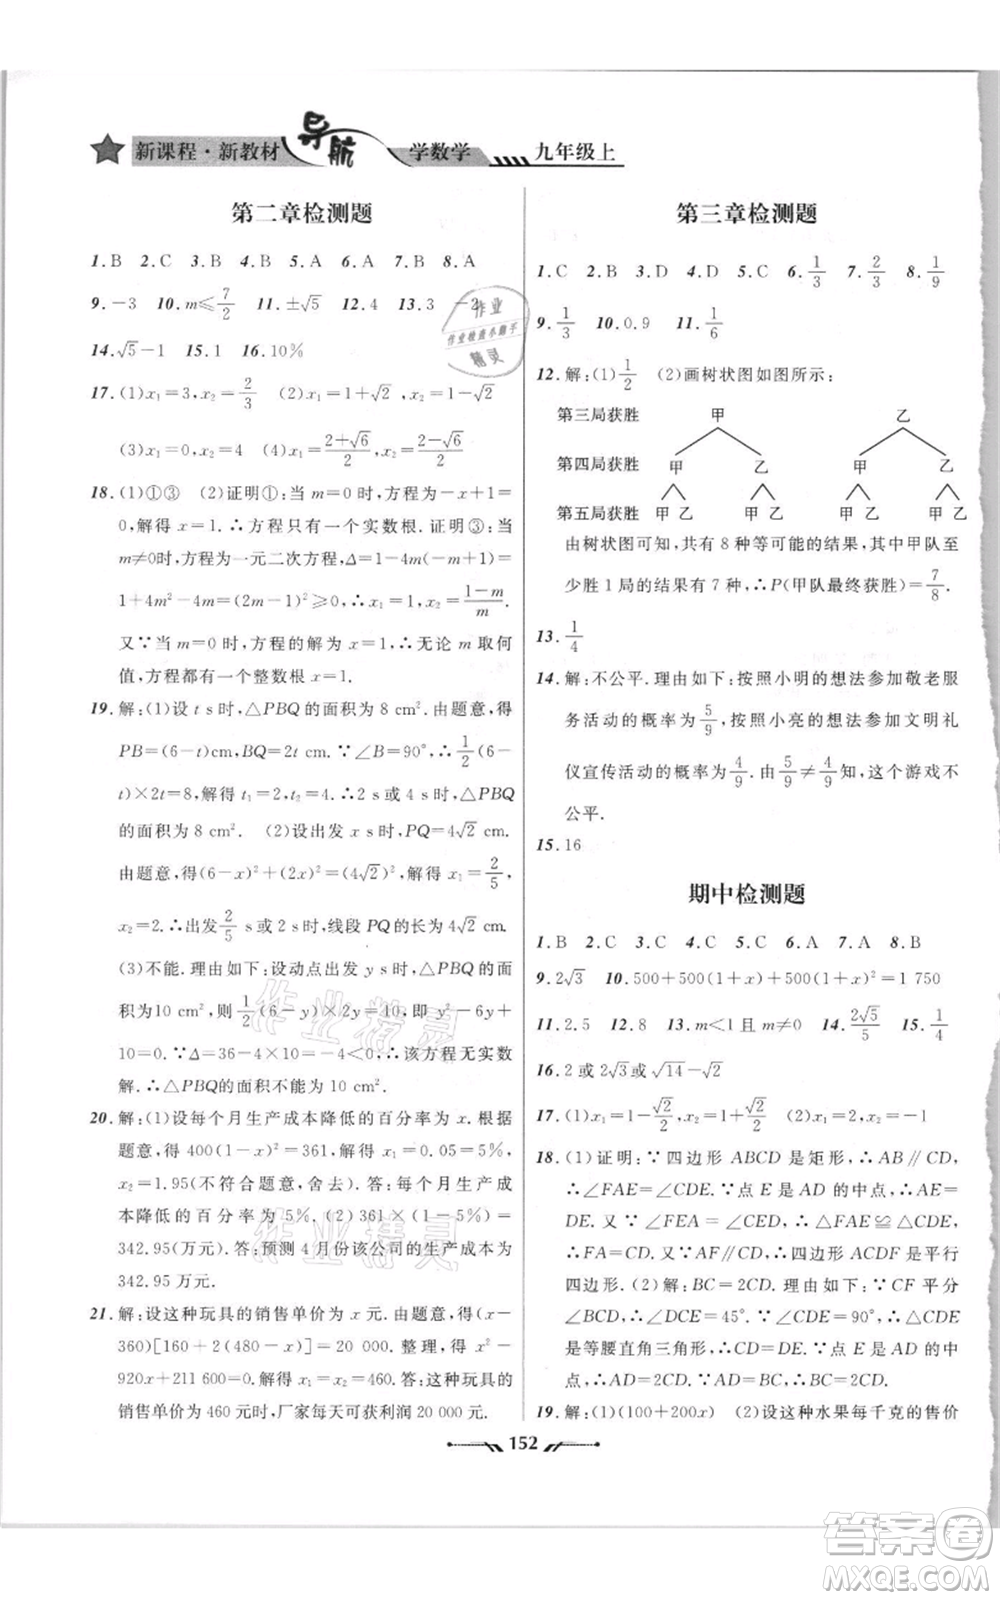 新课程·新教材 导航 学数学 九年级上
第二章检测题
1.B 2.C 3.C 4.B 5.A 6.A 7.B 8.A
9.−3 10.m≤7/2 11.±√5 12.4 13.3 −2
14.√5−1 15.1 16.10%
17.(1)x₁=3,x₂=2/3 (2)x₁=1+√2,x₂=1−√2
(3)x₁=0,x₂=4 (4)x₁=(2+√6)/2,x₂=(2−√6)/2
18.(1)①③ (2)证明①:当 m=0时,方程为−x+1=
0,解得 x=1.∴方程只有一个实数根.证明③:当
m≠0时,方程为一元二次方程,Δ=1−4m(−m+1)=
1+4m²−4m=(2m−1)²≥0,∴x₁=1,x₂=(1−m)/m.
又∵当 m=0 时,方程的解为 x=1,∴无论 m 取何
值,方程都有一个整数根 x=1.
19.解:(1)设 t s时,△PBQ的面积为 8 cm².由题意,得
PB=(6−t)cm,BQ=2t cm.∵∠B=90°,∴1/2(6−
t)×2t=8,解得 t₁=2,t₂=4.∴2 s或 4 s时,△PBQ
的面积为 8 cm². (2)设出发 x s时,PQ=4√2 cm.
由题意,得(6−x)²+(2x)²=(4√2)².解得 x₁=2/5,
x₂=2.∴出发2/5 s或 2 s时,线段 PQ的长为 4√2 cm.
(3)不能.理由如下:设动点出发 y s时,△PBQ的面
积为10 cm²,则1/2(6−y)×2y=10,即 y²−6y+
10=0.∵Δ=36−4×10=−4<0,∴该方程无实数
解.∴△PBQ的面积不能为 10 cm².
20.解:(1)设每个月生产成本降低的百分率为 x.根据
题意,得 400(1−x)²=361,解得 x₁=0.05=5%,
x₂=1.95(不符合题意,舍去).答:每个月生产成
本降低的百分率为 5%. (2)361×(1−5%)=
342.95(万元).答:预测 4 月份该公司的生产成本为
342.95 万元.
21.解:设这种玩具的销售单价为 x 元.由题意,得(x−
360)[160+2(480−x)]=20 000.整理,得 x²−
920x+211 600=0.解得 x₁=x₂=460.答:这种玩具的
销售单价为 460 元时,厂家每天可获利润 20 000 元.
第三章检测题
1.C 2.B 3.D 4.D 5.C 6.1/3 7.2/3 8.1/9
9.1/3 10.0.9 11.1/6
12.解:(1)1/2 (2)画树状图如图所示:
第三局获胜 甲 乙
第四局获胜 甲 乙 甲 乙
第五局获胜 甲 乙 甲 乙 甲 乙 甲 乙
由树状图可知,共有 8 种等可能的结果,其中甲队至
少胜 1 局的结果有 7 种,∴P(甲队最终获胜)=7/8.
13.1/4
14.解:不公平.理由如下:按照小明的想法参加敬老服
务活动的概率为5/9,按照小亮的想法参加文明礼
仪宣传活动的概率为4/9.由5/9≠4/9知,这个游戏不
公平.
15.16
期中检测题
1.B 2.C 3.C 4.C 5.C 6.A 7.A 8.B
9.2√3 10.500+500(1+x)+500(1+x)²=1 750
11.2.5 12.8 13.m<1 且 m≠0 14.2√5/5 15.1/4
16.2 或 2√3 或√14−√2
17.(1)x₁=1−√2/2,x₂=1+√2/2 (2)x₁=x₂=−1
18.(1)证明:∵四边形 ABCD 是矩形,∴AB∥CD.
∴∠FAE=∠CDE.∵点 E 是 AD 的中点,∴AE=
DE.又∵∠FEA=∠CED,∴△FAE≌△CDE.
∴FA=CD.又∵AF∥CD,∴四边形 ACDF 是平行
四边形. (2)解:BC=2CD.理由如下:∵CF 平分
∠BCD,∴∠DCE=45°.∵∠CDE=90°,∴△CDE
是等腰直角三角形,∴CD=DE.∵点 E 是 AD 的中
点,∴AD=2CD.∵AD=BC,∴BC=2CD.
19.解:(1)(100+200x) (2)设这种水果每千克的售价
152
作业
作业检查小助手
精灵
作业精灵
作业精灵
答案圈
MXQE.COM